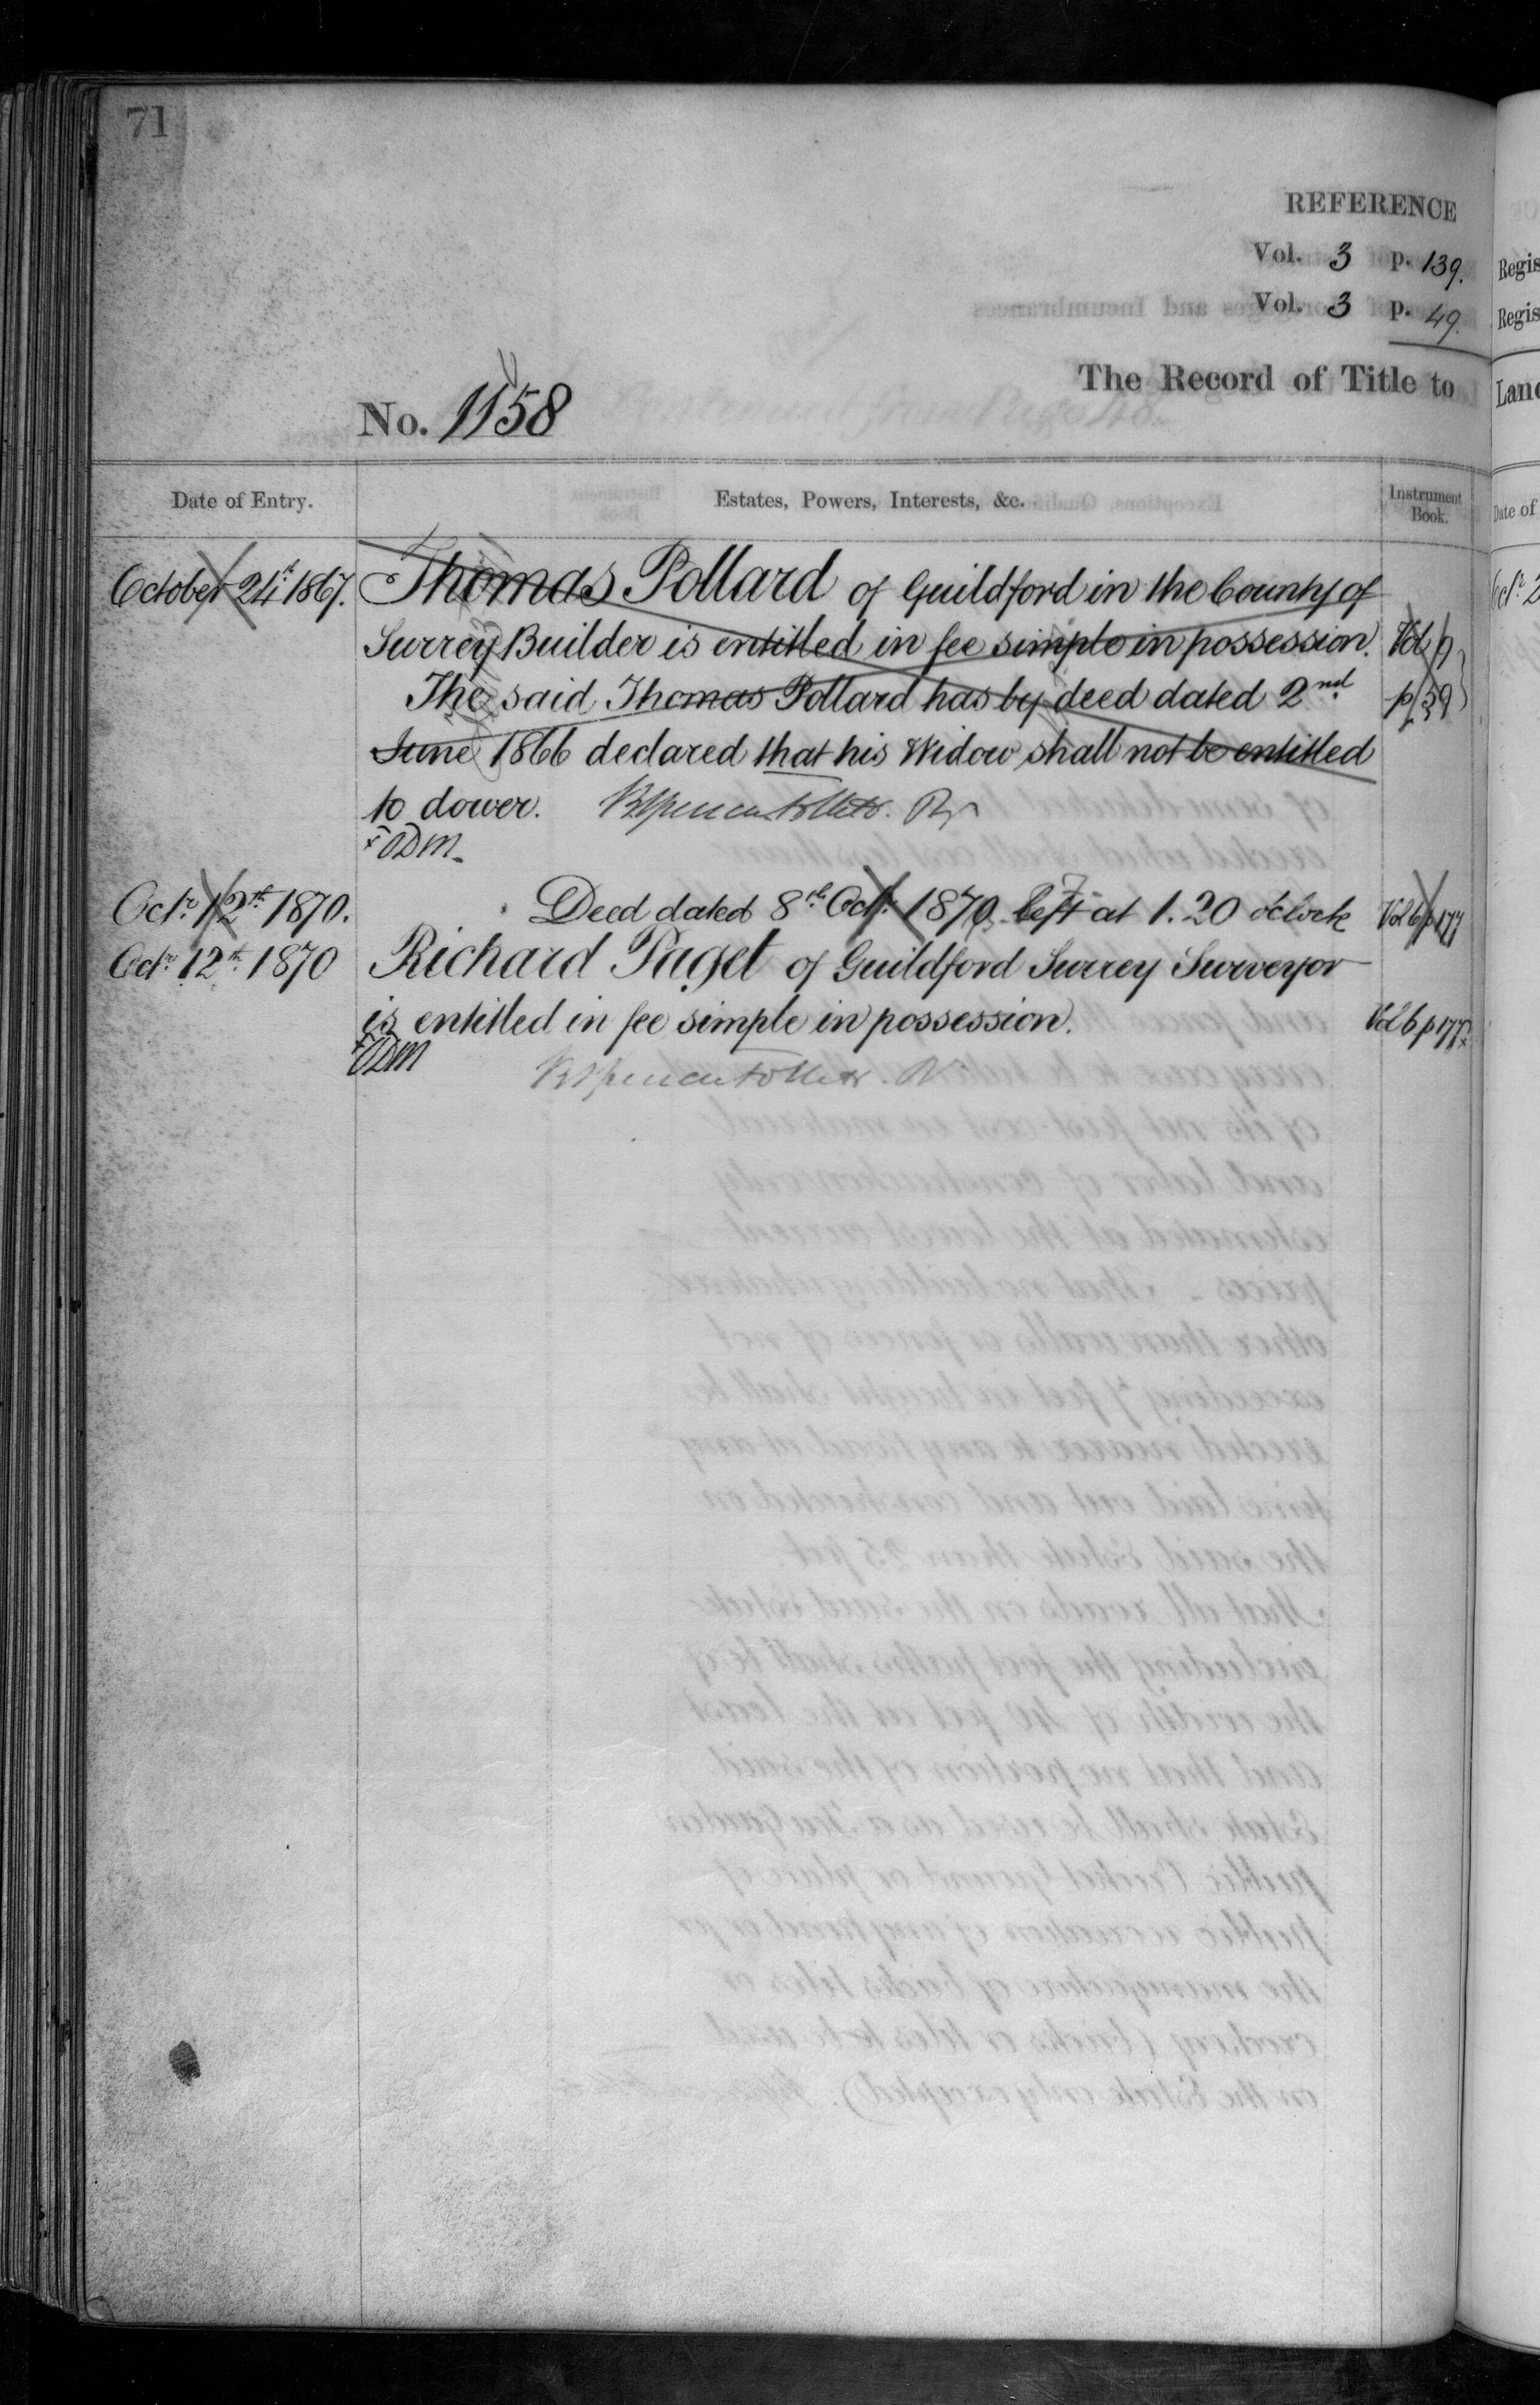 71
REFERENCE
Vol. 3 p. 139.
Vol. 3 p. 49.
The Record of Title to
No. 1158
Date of Entry. Estates, Powers, Interests, &c. Instrument Book.
October 24th 1867. Thomas Pollard of Guildford in the County of
Surrey Builder is entitled in fee simple in possession. Vol
The said Thomas Pollard has by deed dated 2nd p 39
June 1866 declared that his Widow shall not be entitled
to dower.
ODM
Octr. 12th 1870. Deed dated 8th Octr. 1870 left at 1.20 o'clock Vol 6 p 177
Octr. 12th 1870 Richard Paget of Guildford Surrey Surveyor
is entitled in fee simple in possession. Vol 6 p 177
ODM
Regis
Regis
Land
Date of
Octr. 2